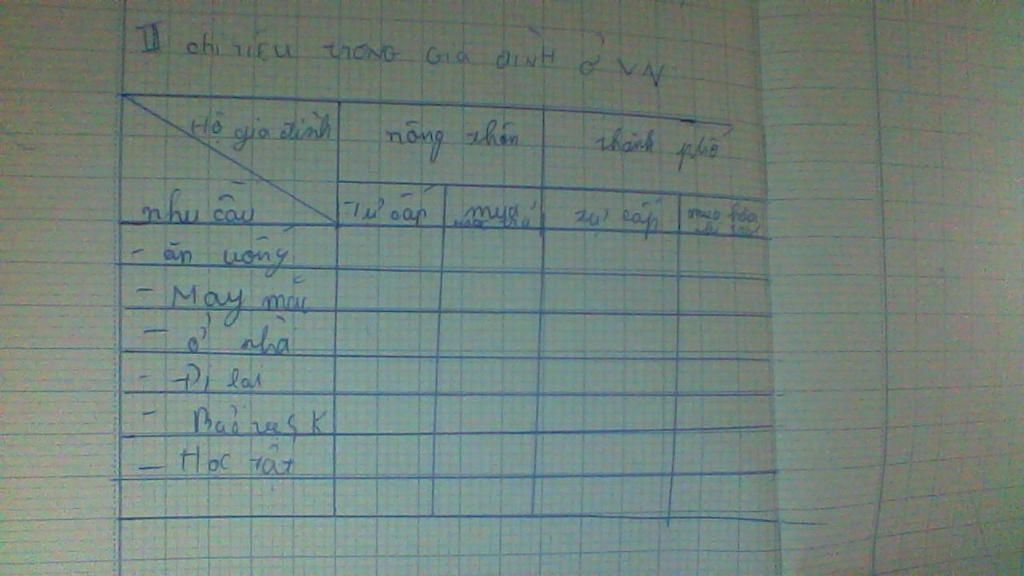 II chi tiêu trong gia đình ở VN
Hộ gia đình nông thôn thành phố
nhu cầu Tự cấp mua tự cấp mua
- ăn uống
- May mặc
- ở nhà
- Đi lại
- Bảo vệ S K
- Học tập